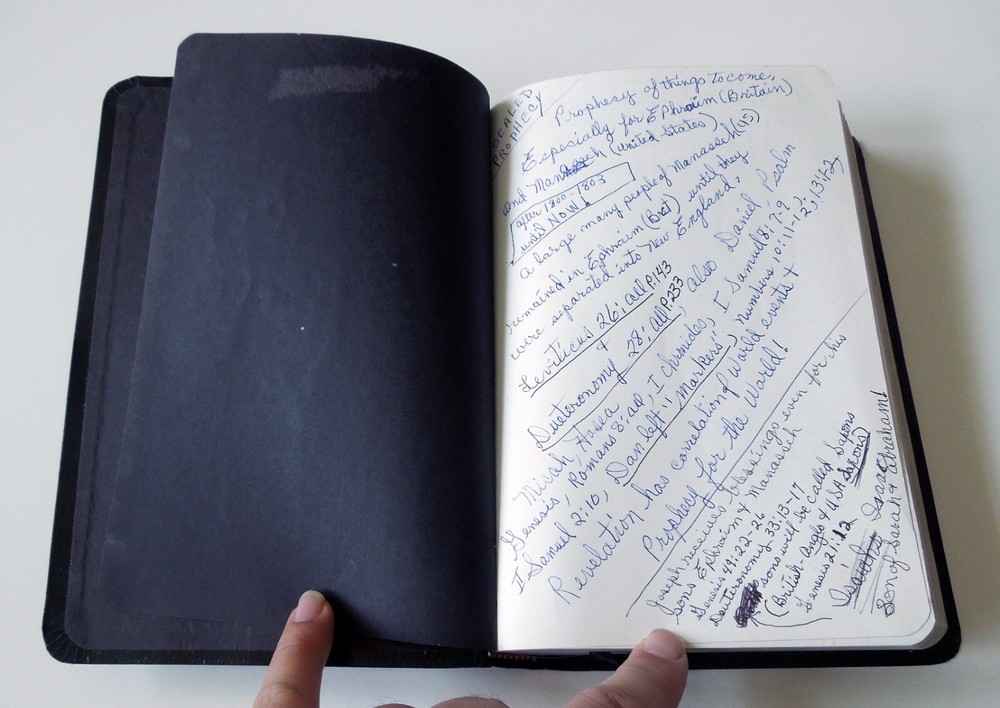 SEALED
PROPHECY
Prophecy of things to come,
Especially for EPhraim (Britain)
and Manasseh (United States)
after 1800-1803
until NOW!
a large many people of Manasseh (US)
remained in Ephraim (Brit) until they
were separated into New England,
Leviticus 26; all P.143
+
Dueteronomy 28; all P.233
also Daniel, Psalm
Micah, Hosea
Genesis, Romans 8: all, I Chronicles, I Samuel 8; 7-9
II Samuel 2:10, Dan left "Markers", Numbers 10:11-12;
23, 13:12
Revelation has correlation of World events +
Prophecy for the World!
Joseph receives blessings even for his
sons Ephraim & Manasseh
Genesis 49:22-26
Deuteronomy 33:13-17
(sons will be called Saxons
(British-Anglo & USA Saxons)
Genesis 21:12
Isaac
Son of Sarah & Abraham!